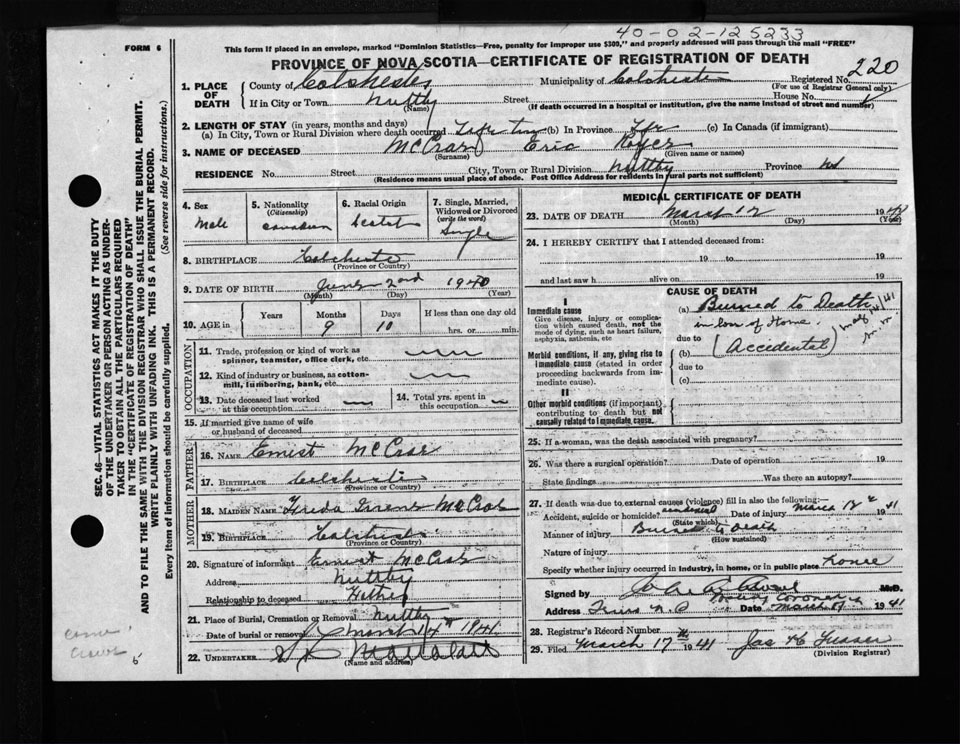 40-02-125233
FORM 6
This form if placed in an envelope, marked "Dominion Statistics—Free, penalty for improper use $300," and properly addressed will pass through the mail "FREE"
PROVINCE OF NOVA SCOTIA—CERTIFICATE OF REGISTRATION OF DEATH
220
1. PLACE OF DEATH County of Colchester Municipality of Colchester Registered No.
(For use of Registrar General only)
If in City or Town Nuttby (Name) Street House No.
(If death occurred in a hospital or institution, give the name instead of street and number)
2. LENGTH OF STAY (in years, months and days)
(a) In City, Town or Rural Division where death occurred Life time (b) In Province Life (c) In Canada (if immigrant)
3. NAME OF DECEASED Eric
(Surname) (Given name or names)
RESIDENCE No. Street City, Town or Rural Division Nuttby Province NS
(Residence means usual place of abode. Post Office Address for residents in rural parts not sufficient)
4. Sex Male
5. Nationality (Citizenship) Canadian
6. Racial Origin
7. Single, Married, Widowed or Divorced (write the word) Single
8. BIRTHPLACE Colchester
(Province or Country)
9. DATE OF BIRTH June 2nd 1940
(Month) (Day) (Year)
10. AGE in Years Months 9 Days 10 If less than one day old hrs. or min.
OCCUPATION
11. Trade, profession or kind of work as spinner, teamster, office clerk, etc.
12. Kind of industry or business, as cotton-mill, lumbering, bank, etc.
13. Date deceased last worked at this occupation
14. Total yrs. spent in this occupation
15. If married give name of wife or husband of deceased
FATHER
16. NAME Ernest
17. BIRTHPLACE Colchester
(Province or Country)
MOTHER
18. MAIDEN NAME
19. BIRTHPLACE Colchester
(Province or Country)
20. Signature of informant Ernest
Address Nuttby
Relationship to deceased Father
21. Place of Burial, Cremation or Removal Nuttby
Date of burial or removal March 14th 1941
22. UNDERTAKER
(Name and address)
MEDICAL CERTIFICATE OF DEATH
23. DATE OF DEATH March 12 194
(Month) (Day) (Year)
24. I HEREBY CERTIFY that I attended deceased from:
19 to 19
and last saw h alive on 19
CAUSE OF DEATH
I
Immediate cause
Give disease, injury or complication which caused death, not the mode of dying, such as heart failure, asphyxia, asthenia, etc
(a) Burned to Death
in loss of Home.
due to (Accidental)
Morbid conditions, if any, giving rise to immediate cause (stated in order proceeding backwards from immediate cause).
(b)
due to
(c)
II
Other morbid conditions (if important) contributing to death but not causally related to immediate cause.
25. If a woman, was the death associated with pregnancy?
26. Was there a surgical operation? Date of operation 19
State findings Was there an autopsy?
27. If death was due to external causes (violence) fill in also the following:—
Accident, suicide or homicide? accidental Date of injury March 12 1941
(State which)
Manner of injury Burned to death
(How sustained)
Nature of injury
Specify whether injury occurred in industry, in home, or in public place home
Signed by M.D.
Address Truro N.S. Date March 1941
28. Registrar's Record Number
29. Filed March 17th 1941 Jas
(Division Registrar)
SEC. 46—VITAL STATISTICS ACT MAKES IT THE DUTY
OF THE UNDERTAKER OR PERSON ACTING AS UNDER-
TAKER TO OBTAIN ALL THE PARTICULARS REQUIRED
IN THE "CERTIFICATE OF REGISTRATION OF DEATH"
AND TO FILE THE SAME WITH THE DIVISION REGISTRAR WHO SHALL ISSUE THE BURIAL PERMIT.
WRITE PLAINLY WITH UNFADING INK. THIS IS A PERMANENT RECORD.
Every item of information should be carefully supplied. (See reverse side for instructions.)